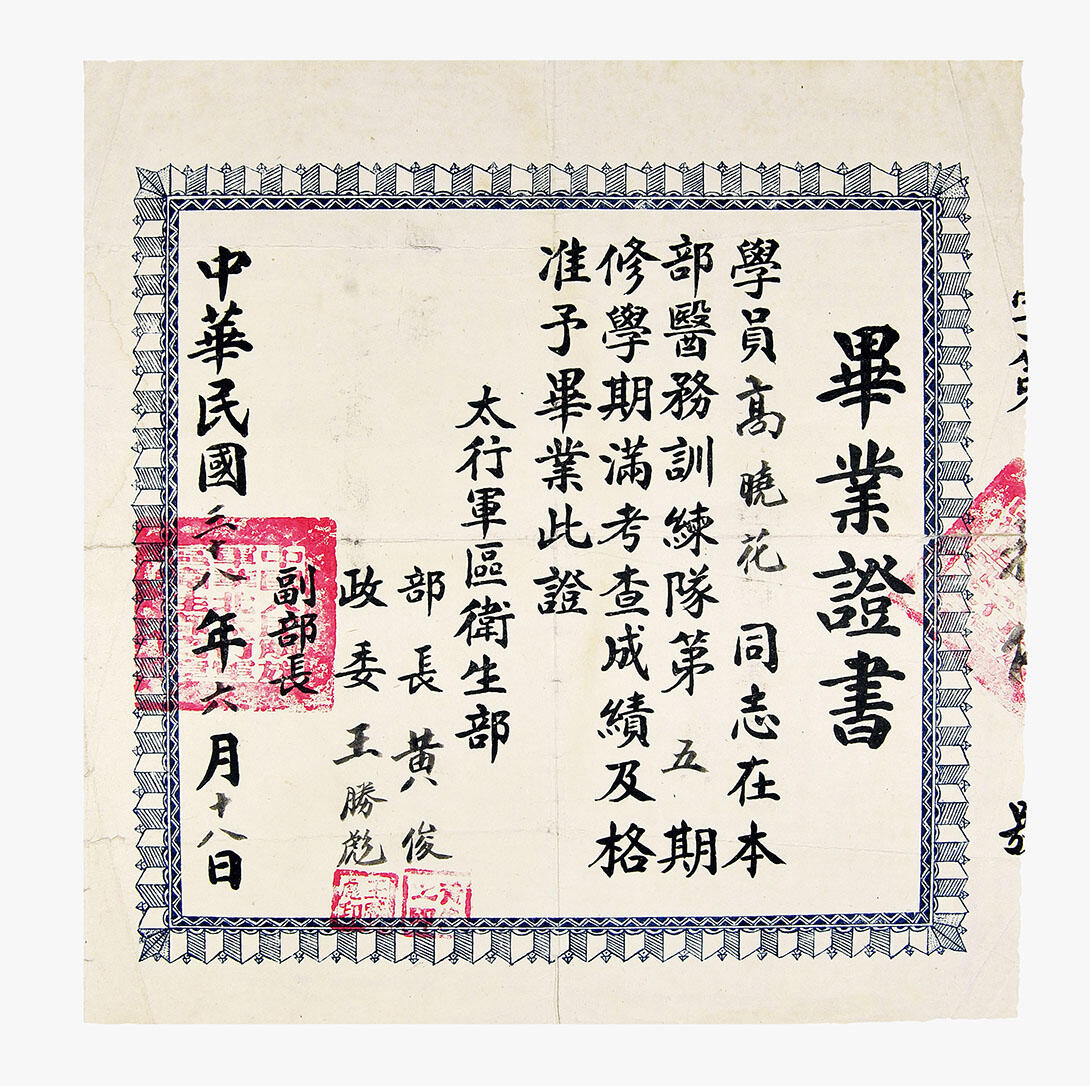 畢業證書
學員高曉花同志在本
部醫務訓練隊第五期
修學期滿考查成績及格
准予畢業此證
太行軍區衛生部
部長黃俊
政委王勝彪
副部長
中華民國三十八年六月十八日
號